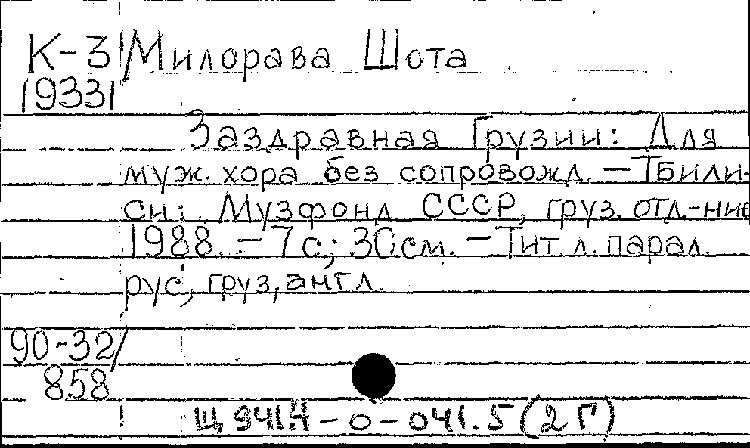 К-3 Милорава Шота
19331
Заздравная Грузии: Для
муж. хора без сопровожд. – Тбили-
си: Музфонд СССР, груз. отд-ние
1988. – 7 с.; 30 см. – Тит. л. парал.
рус, груз, англ.
90-32/
858
Щ 941.4 – 0 – 041.5 (2 Г)